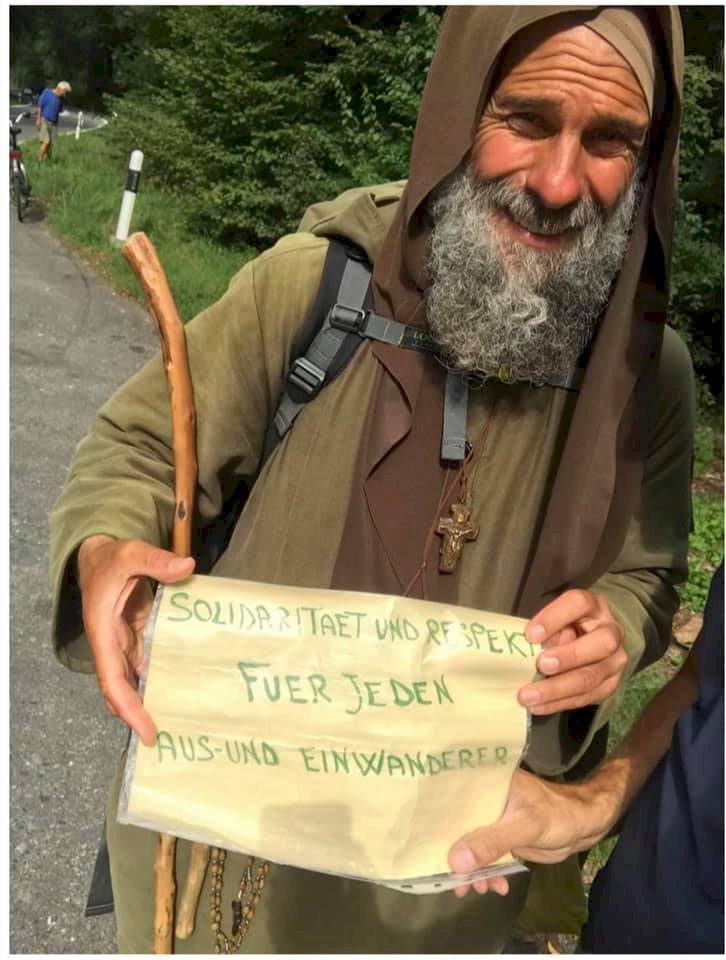 SOLIDARITAET UND RESPEKT
FUER JEDEN
AUS-UND EINWANDERER